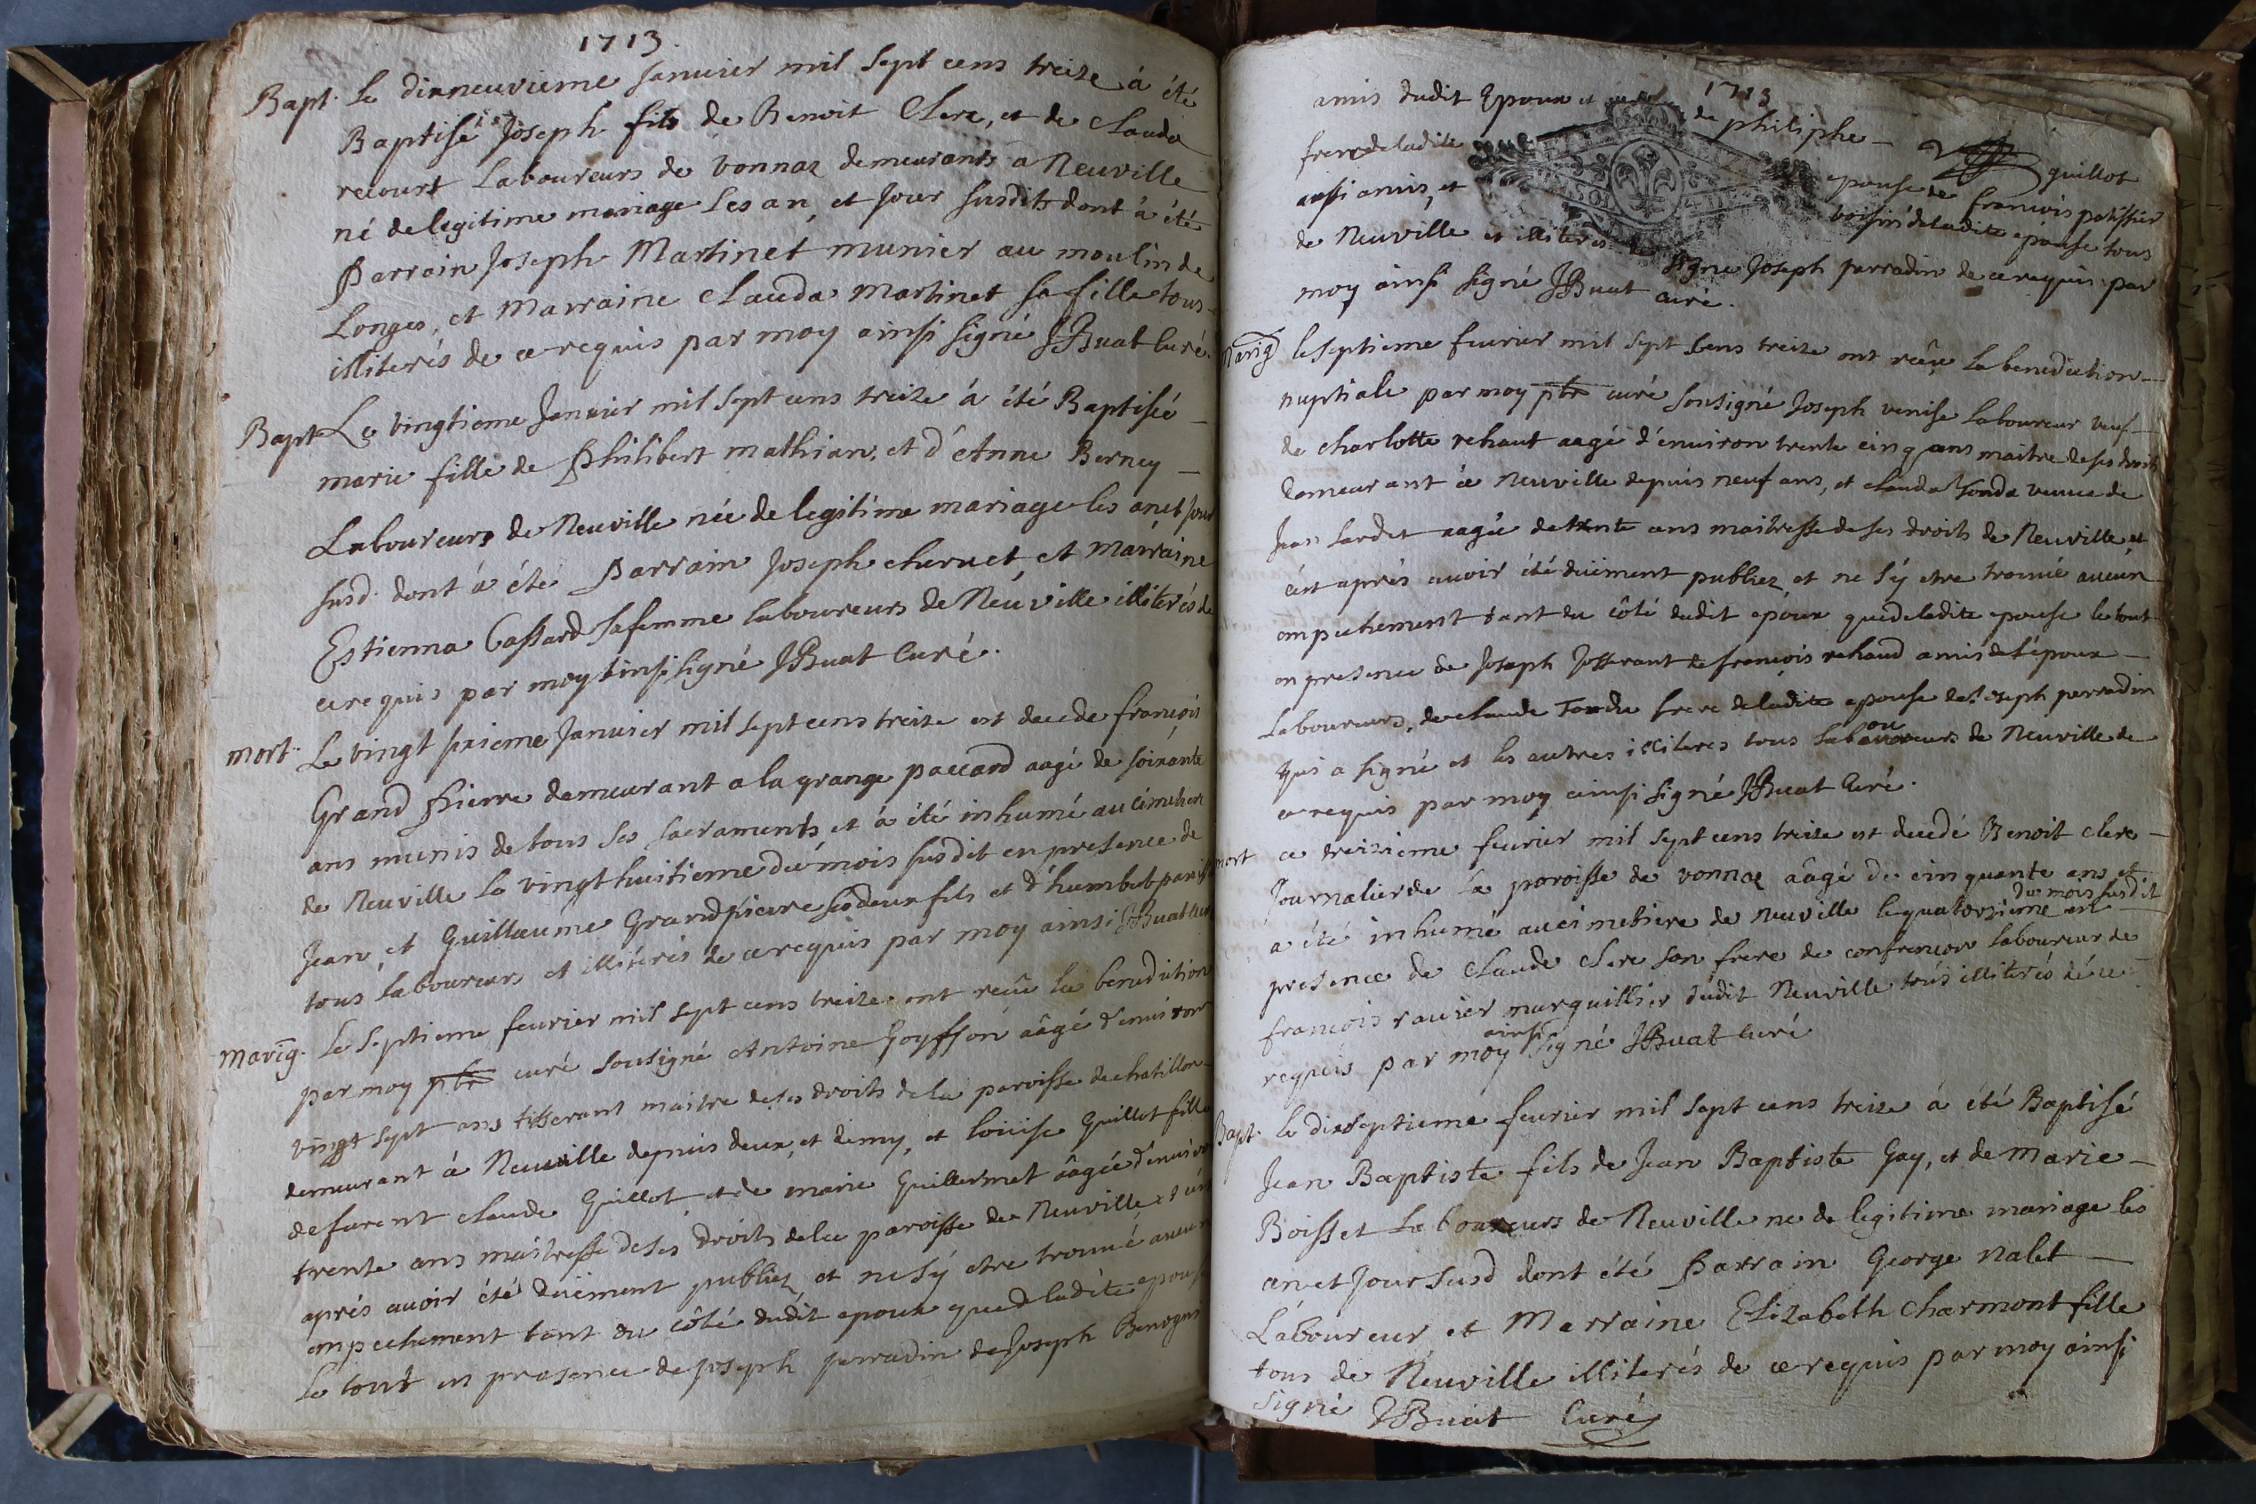 1713.
Bapt. Le dixneuvieme Janvier mil sept cens treize à été
Baptisé Joseph fils de Benoit Clerc, et de Clauda
recourt Laboureurs de vonnaz demeurants a Neuville
né de legitime mariage les an, et Jour susdits dont à été
Parrain Joseph Martinet munier au moulin de
Longes, et Marraine Clauda Martinet sa fille tous
illiterés de ce requis par moy ainsi signé JBuat Curé.
Bapt Le vingtieme Janvier mil sept cens treize à été Baptisée
marie fille de Philibert mathian, et d'Anne Berney
Laboureurs de Neuville née de legitime mariage les an et jour
susd. dont à été Parrain Joseph chernet, et Marraine
Estienna Cassard sa femme laboureurs de Neuville illiterés de
ce requis par moy ainsi signé JBuat Curé.
mort. Le vingt sixieme Janvier mil sept cens treize est decede françois
Grand Pierre demeurant a la grange paccard aagé de soixante
ans munis de tous ses sacraments et à été inhumé au cimetiere
de Neuville le vingt huitieme du mois susdit en presence de
Jean, et Guillaume Grandpierre ses deux fils et d'humbert
tous laboureurs et illiterés de ce requis par moy ainsi JBuat curé
mariag. Le septieme fevrier mil sept cens treize ont reçu la benediction
par moy pbr curé sousigné Antoine Goyffon aâgé d'environ
vingt sept ans tisserant maitre de ses droits de la paroisse de chatillon
demeurant à Neuville depuis deux, et demy, et louise Guillot fille
de furent claude Guillot, et de marie Guillermet aâgée d'environ
trente ans maitresse de ses droits de la paroisse de Neuville
aprés avoir été duëment publiez et ne s'y etre trouvé aucun
empechement tant du côté dudit epoux que de ladite epouse
Le tout en presence de Joseph perradin de Joseph
1713
amis dudit Epoux et de philiphe guillot
frere de ladite epouse de francois patissier
aussi amis, et voisin de ladite epouse tous
de Neuville et illiterés signe Joseph parradin de ce requis par
moy ainsi signé JBuat curé.
Mariag le septieme fevrier mil sept Cens treize ont reçu la benediction
nuptiale par moy pbr curé sousigné Joseph venise laboureur veuf
de charlotte rehaut aagé d'environ trente cinq ans maitre de ses droits
demeurant à Neuville depuis neuf ans, et clauda Tondu veuve de
Jean lardet aagée de trente ans maitresse de ses droits de Neuville et
c'est aprés avoir été duëment publiez, et ne s'y etre trouvé aucun
empechement tant du côté dudit epoux que de ladite epouse le tout
en presence de Joseph Josserant de francois rehaud amis de l'époux
Laboureurs, de claude Tondu frere de ladite epouse de Joseph perradin
qui a signé et les autres illiteres tous laboureurs de Neuville de
ce requis par moy ainsi signé JBuat Curé.
mort ce treisieme fevrier mil sept cens treize est decedé Benoit clerc
Journalier de la paroisse de vonnaz aâgé de cinquante ans et
a été inhumé au cimetiere de Neuville le quatorsieme du mois susdit en
presence de Claude Clerc son frere de laboureur de
francois ravier marguillier dudit Neuville tous illiterés de ce
requis par moy ainsi signé JBuat Curé
Bapt. Le dixseptieme fevrier mil sept cens treize à été Baptisé
Jean Baptiste fils de Jean Baptiste Gay, et de Marie
Boisset Laboureurs de Neuville né de legitime mariage les
an et Jour susd dont été Parrain George nalet
Laboureur, et Marraine Elizabeth charmont fille
tous de Neuville illiterés de ce requis par moy ainsi
signé JBuat Curé